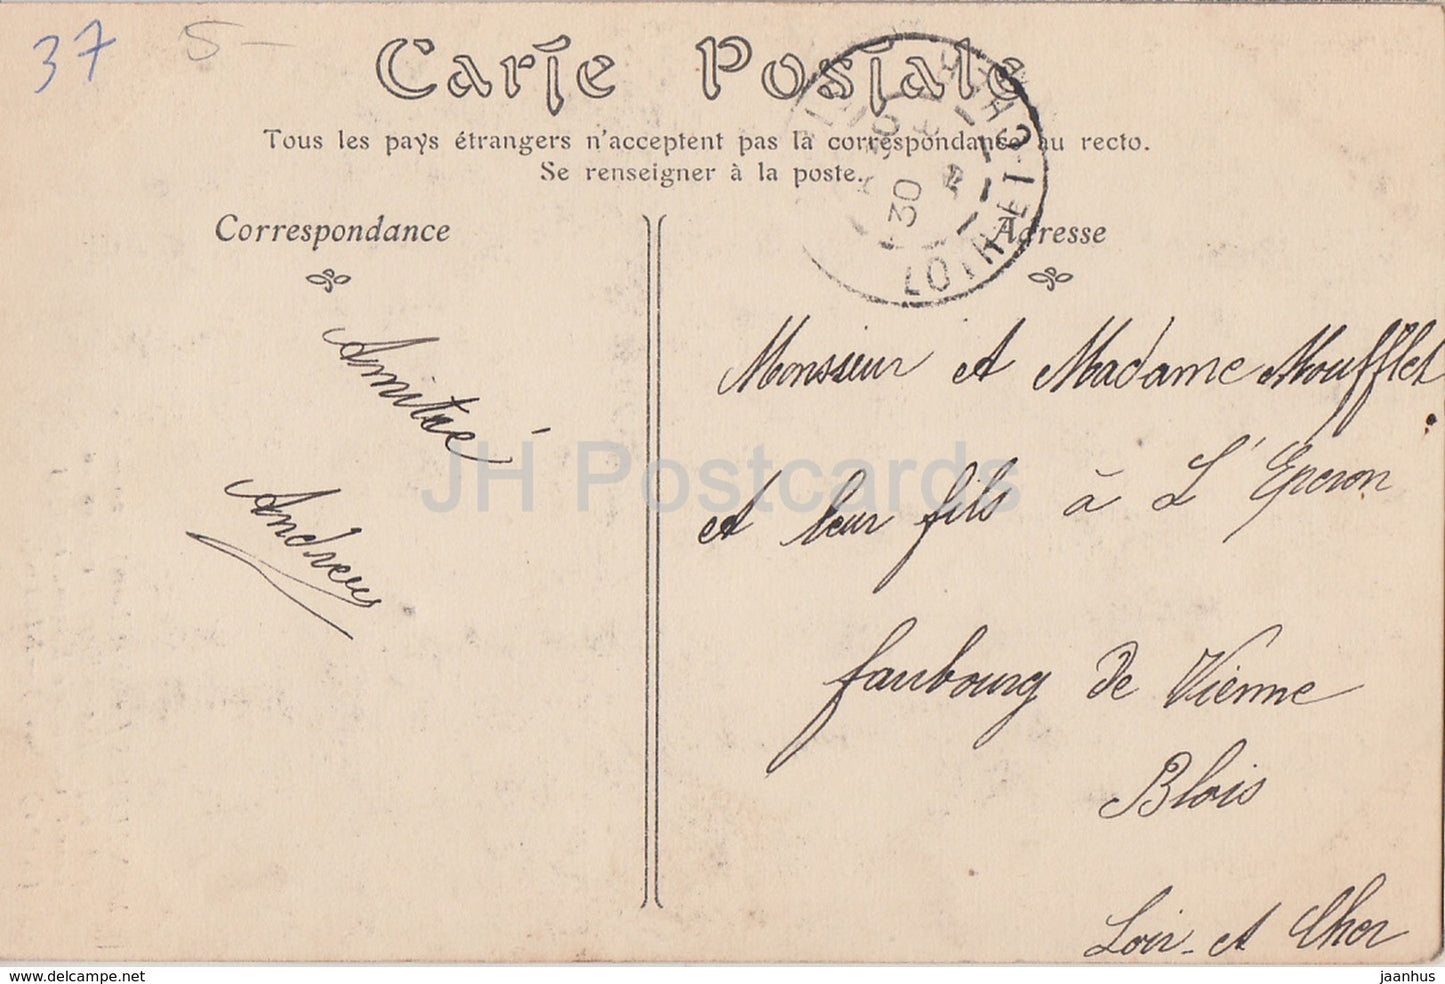 37
5 -
Carte Postale
Tous les pays étrangers n'acceptent pas la correspondance au recto.
Se renseigner à la poste.
Correspondance
Adresse
LOIRET
30
Amitié
Andreux
Monsieur et Madame Moufflet
et leur fils à L'Eperon
faubourg de Vienne
Blois
Loir-et Cher
JH Postcards
www.delcampe.net
jaanhus